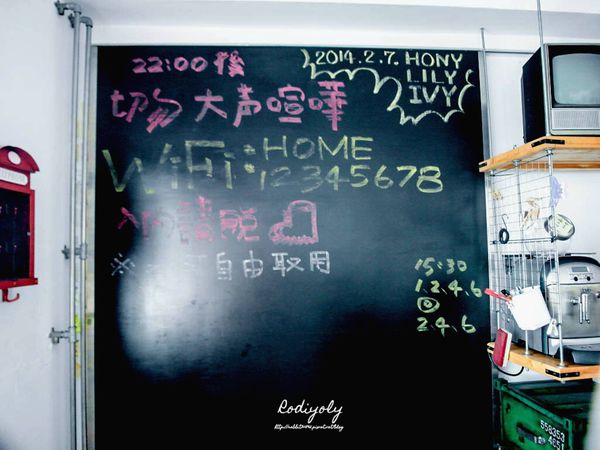 22:00後
切勿大声喧嘩
2014.2.7. HONY
LILY
IVY
WiFi: HOME
12345678
入內請脫
※ 自由取用
15:30
1.2.4.6
2.4.6
Rodiyoly
558353